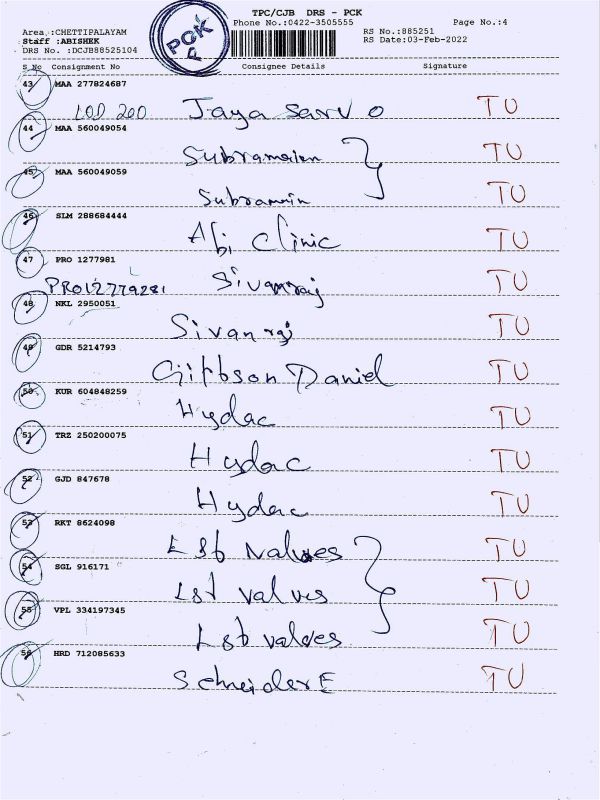 TPC/CJB DRS - PCK
Phone No.:0422-3505555 Page No.:4
Area :CHETTIPALAYAM RS No.:885251
Staff :ABISHEK RS Date:03-Feb-2022
DRS No. :DCJB88525104
PCK
P
S No Consignment No Consignee Details Signature
43 MAA 277824687
LOD 200 Jaya Sarvo TU
44 MAA 560049054
Subramanian TU
45 MAA 560049059
Subramnin TU
46 SLM 288684444
Abi Clinic TU
47 PRO 1277981
PRO12779281 Sivanraj TU
48 NKL 2950051
Sivanraj TU
49 GDR 5214793
Giftson Daniel TU
50 KUR 604848259
Hydac TU
51 TRZ 250200075
Hydac TU
52 GJD 847678
Hydac TU
53 RKT 8624098
L&t Valves TU
54 SGL 916171
L&t Valves TU
55 VPL 334197345
L&t valves TU
56 HRD 712085633
Schneider E TU